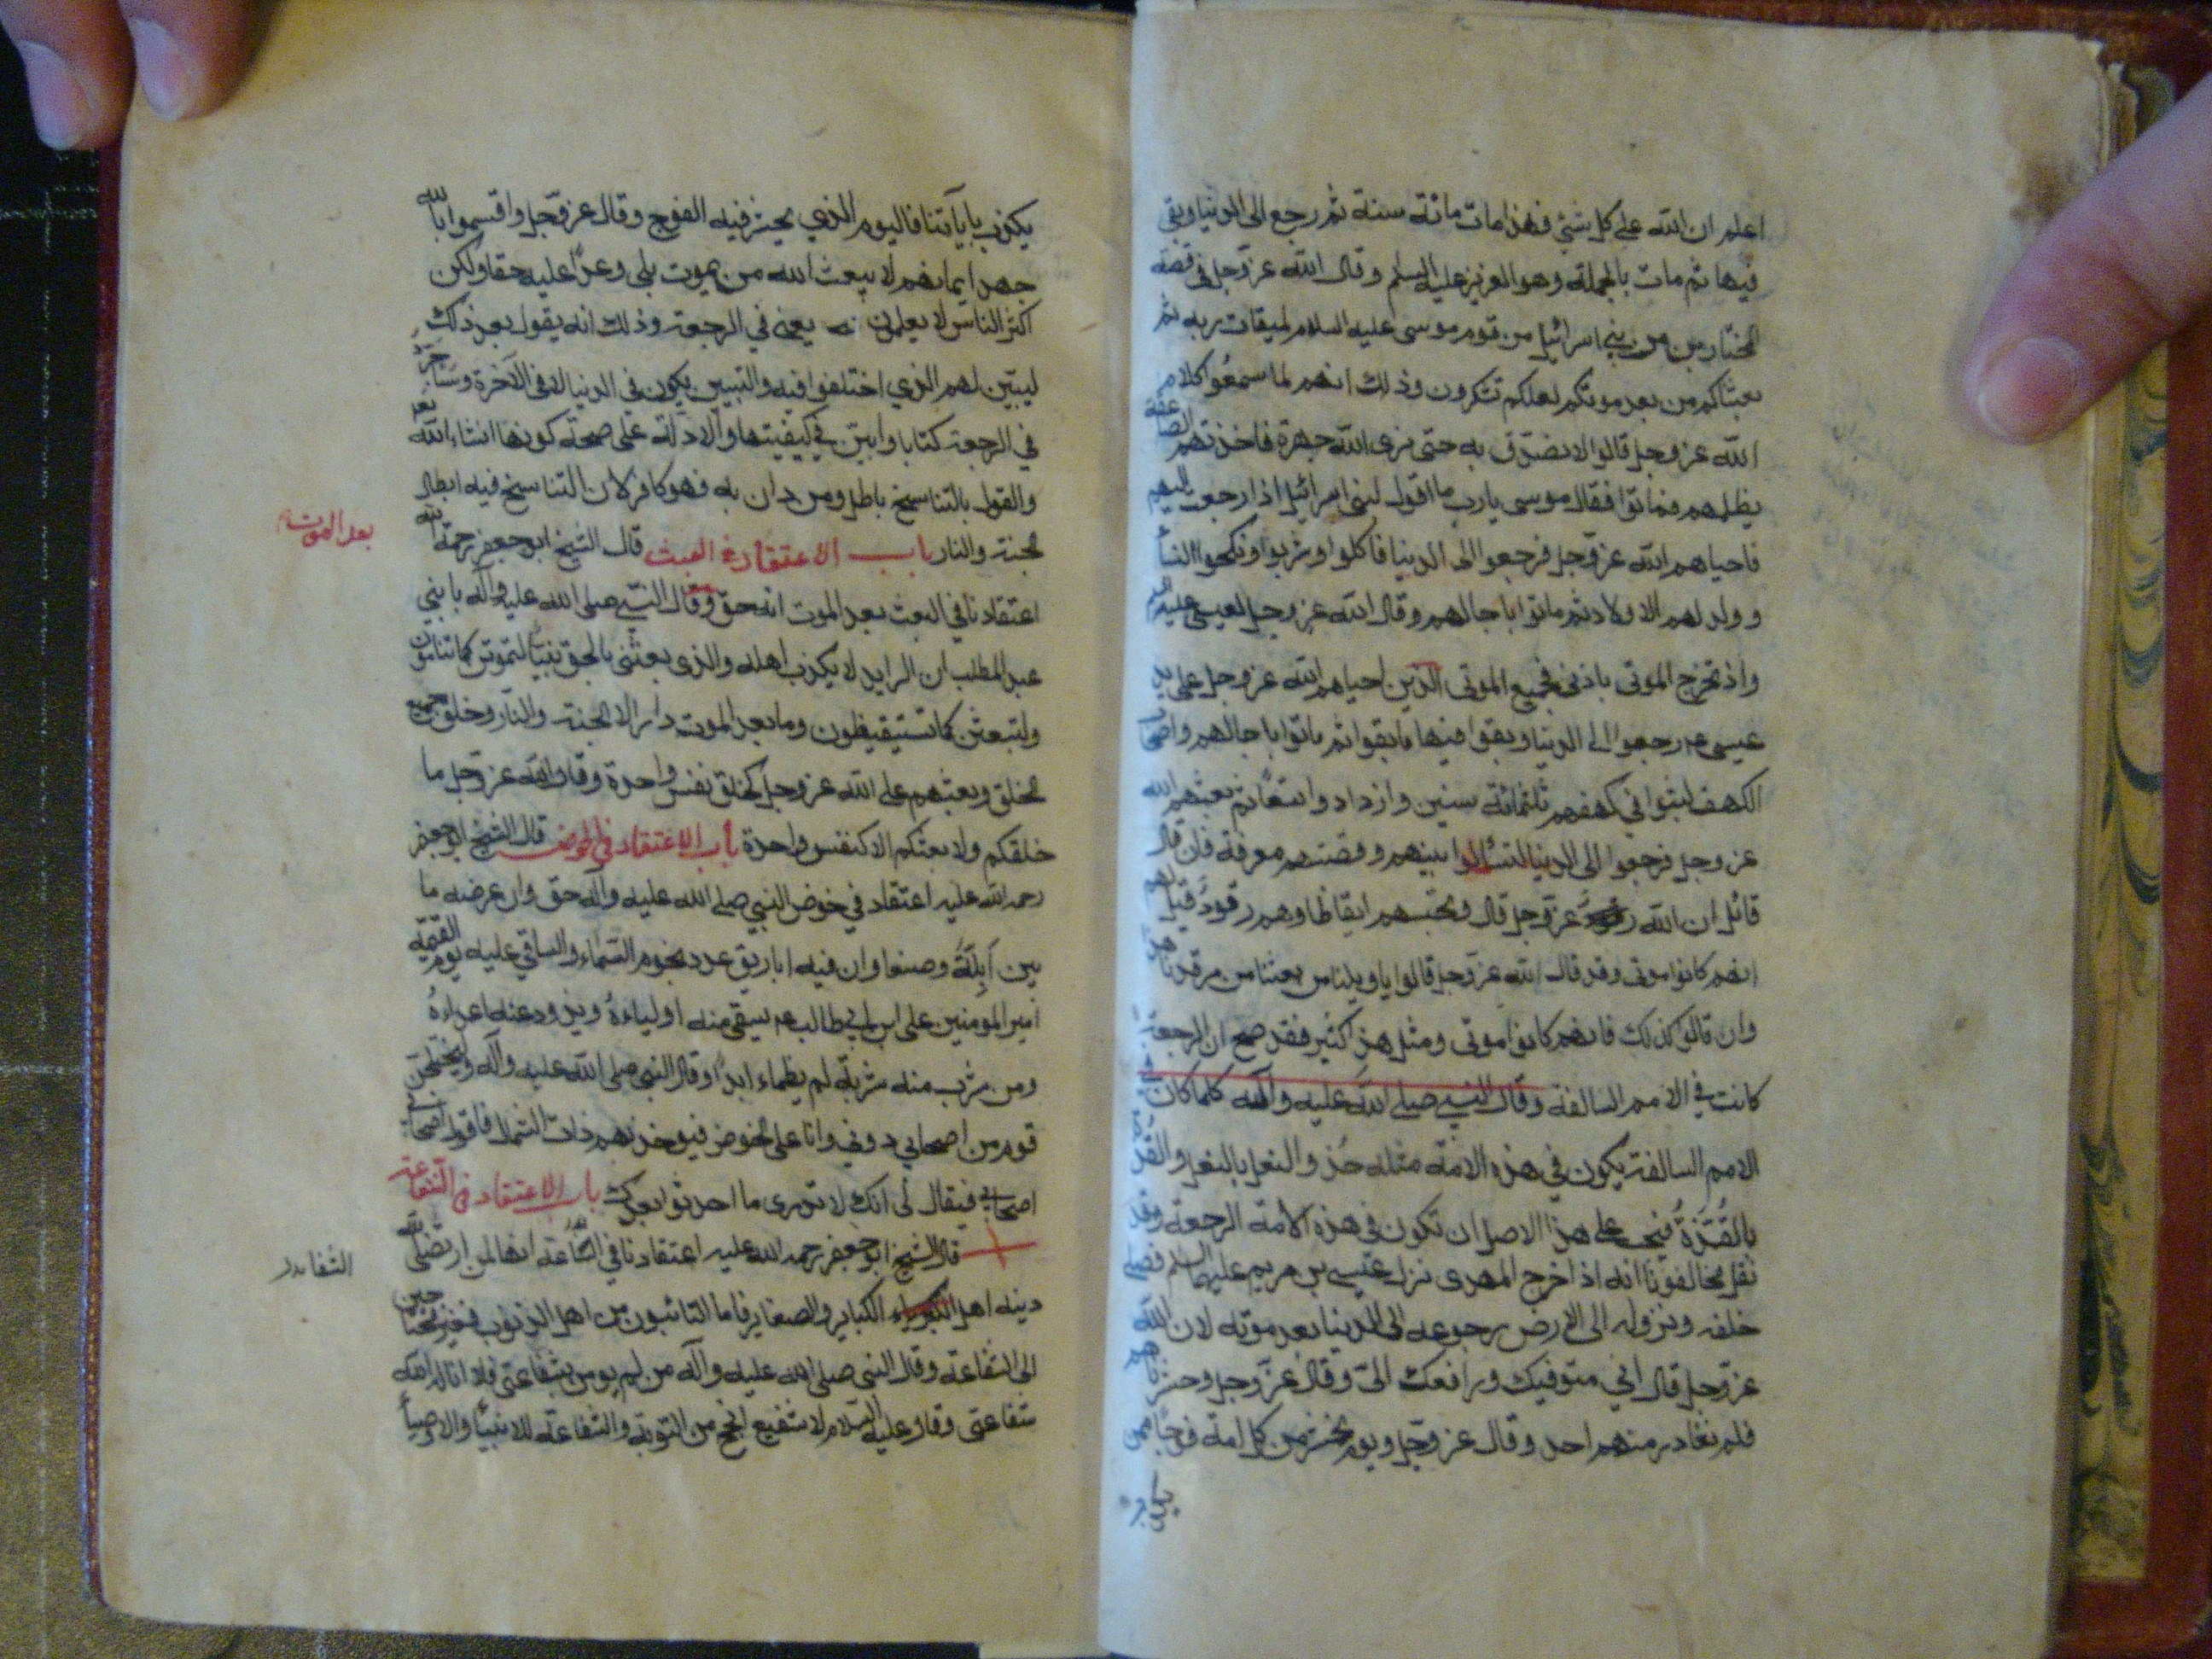 اعلم ان الله على كل شئ فهذا مات مائة سنة ثم رجع الى الدنيا وبقى
فيها ثم مات بالجملة وهو العزيز عليه السلم وقال الله عز وجل فى قصة
المختارين من بنى اسرائيل من قوم موسى عليه السلام لميقات ربه ثم
بعثناكم من بعد موتكم لعلكم تشكرون وذلك انهم لما سمعوا كلام
الله عز وجل قالوا لا نصدق به حتى نرى الله جهرة فاخذتهم الصاعقة
بظلمهم فماتوا فقال موسى يارب ما اقول لبنى اسرائيل اذا رجعت اليهم
فاحياهم الله عز وجل فرجعوا الى الدنيا فاكلوا وشربوا ونكحوا النسا
وولد لهم الاولاد ثم ماتوا باجالهم وقال الله عز وجل لعيسى عليه
واذ تخرج الموتى باذنى فجميع الموتى الذين احياهم الله عز وجل على يد
عيسى عم رجعوا الى الدنيا وبقوا فيها ما بقوا ثم ماتوا باجالهم واصحاب
الكهف لبثوا فى كهفهم ثلثمائة سنين وازدادوا تسعا ثم بعثهم الله
عز وجل فرجعوا الى الدنيا لتسألوا بينهم وقصتهم معرفة فان قال
قائل ان الله عز وجل قال وتحسبهم ايقاظا وهم رقود قيل لهم
انهم كانوا موتى وقد قال الله عز وجل قالوا يا ويلنا من بعثنا من مرقدنا هذا
وان قالوا كذلك فانهم كانوا موتى ومثل هذ اكثير فقد صح ان الرجعة
كانت فى الامم السالفة وقال النبى صلى الله عليه وآله كلما كان فى
الامم السالفة يكون فى هذه الامة مثله حذو النعل بالنعل والقذة
بالقذة فيجب على هذا الاصل ان تكون فى هذه الامة الرجعة وقد
نقل مخالفونا انه اذا خرج المهدى نزل عيسى بن مريم عليهما السلم فصلى
خلفه ونزوله الى الارض رجوعه الى الدنيا بعد موته لان الله
عز وجل قال انى متوفيك ورافعك الى وقال عز وجل وحشرناهم
فلم نغادر منهم احد وقال عز وجل ويوم نحشر من كل امة فوجا ممن
يكذب
يكذب باياتنا فاليوم الذي يحشر فيه الفوج وقال عز وجل واقسموا بالله
جهد ايمانهم لا يبعث الله من يموت بلى وعدا عليه حقا ولكن
اكثر الناس لا يعلمون يعنى في الرجعة وذلك انه يقول بعد ذلك
ليبين لهم الذي اختلفوا فيه والتبيين يكون فى الدنيا لا فى الآخرة وساجرد
في الرجعة كتابا وابين في كيفيتها والادلة على صحة كونها انشاء الله
والقول بالتناسخ باطل ومن دان به فهو كافر لان التناسخ فيه ابطال
لجنة والنار باب الاعتقاد في البعث قال الشيخ ابو جعفر رحمة الله
بعد الموت
اعتقادنا في البعث بعد الموت انه حق وقال النبى صلى الله عليه وآله يا بني
عبد المطلب ان الرايد لا يكذب اهله والذى بعثنى بالحق نبيا لتموتن كما تنامون
ولتبعثن كما تستيقيظون وما بعد الموت دار الا لجنة والنار وخلق جميع
لخلق وبعثهم على الله عز وجل كخلق نفس واحدة وقال الله عز وجل ما
خلقكم ولا بعثكم الا كنفس واحدة باب الاعتقاد في الحوض قال الشيخ ابو جعفر
رحمه الله عليه اعتقاد في خوض النبي صلى الله عليه وآله حق وان عرضه ما
بين أبلة وصنعا وان فيه اباريق عدد نجوم السماء والساقي عليه يوم القيمة
امير المومنين على ابن ابي طالب عم يسقى منه اولياءه ويذود عنه اعداءه
ومن شرب منه شربة لم يظماء ابدا وقال النبى صلى الله عليه وآله وليختلجن
قوم من اصحابي دوني وانا على لخوض فيوخذ بهم ذات الشمال فاقول اصحابي
اصحابي فيقال لى انك لا تدرى ما احدثوا بعدك باب الاعتقاد في الشفاعة
قال الشيخ ابو جعفر رحمه الله عليه اعتقادنا في الشفاعة انها لمن ارتضى الله
دينه اهل الكباير والصغاير فاما التائبون من اهل الذنوب فغير محتاجين
الى الشفاعة وقال النبى صلى الله عليه وآله من لم يومن بشفاعتى فلا اناله الله
شفاعتى وقال عليه السلام لا شفيع انجح من التوبة والشفاعة للانبيأ والاوصيأ